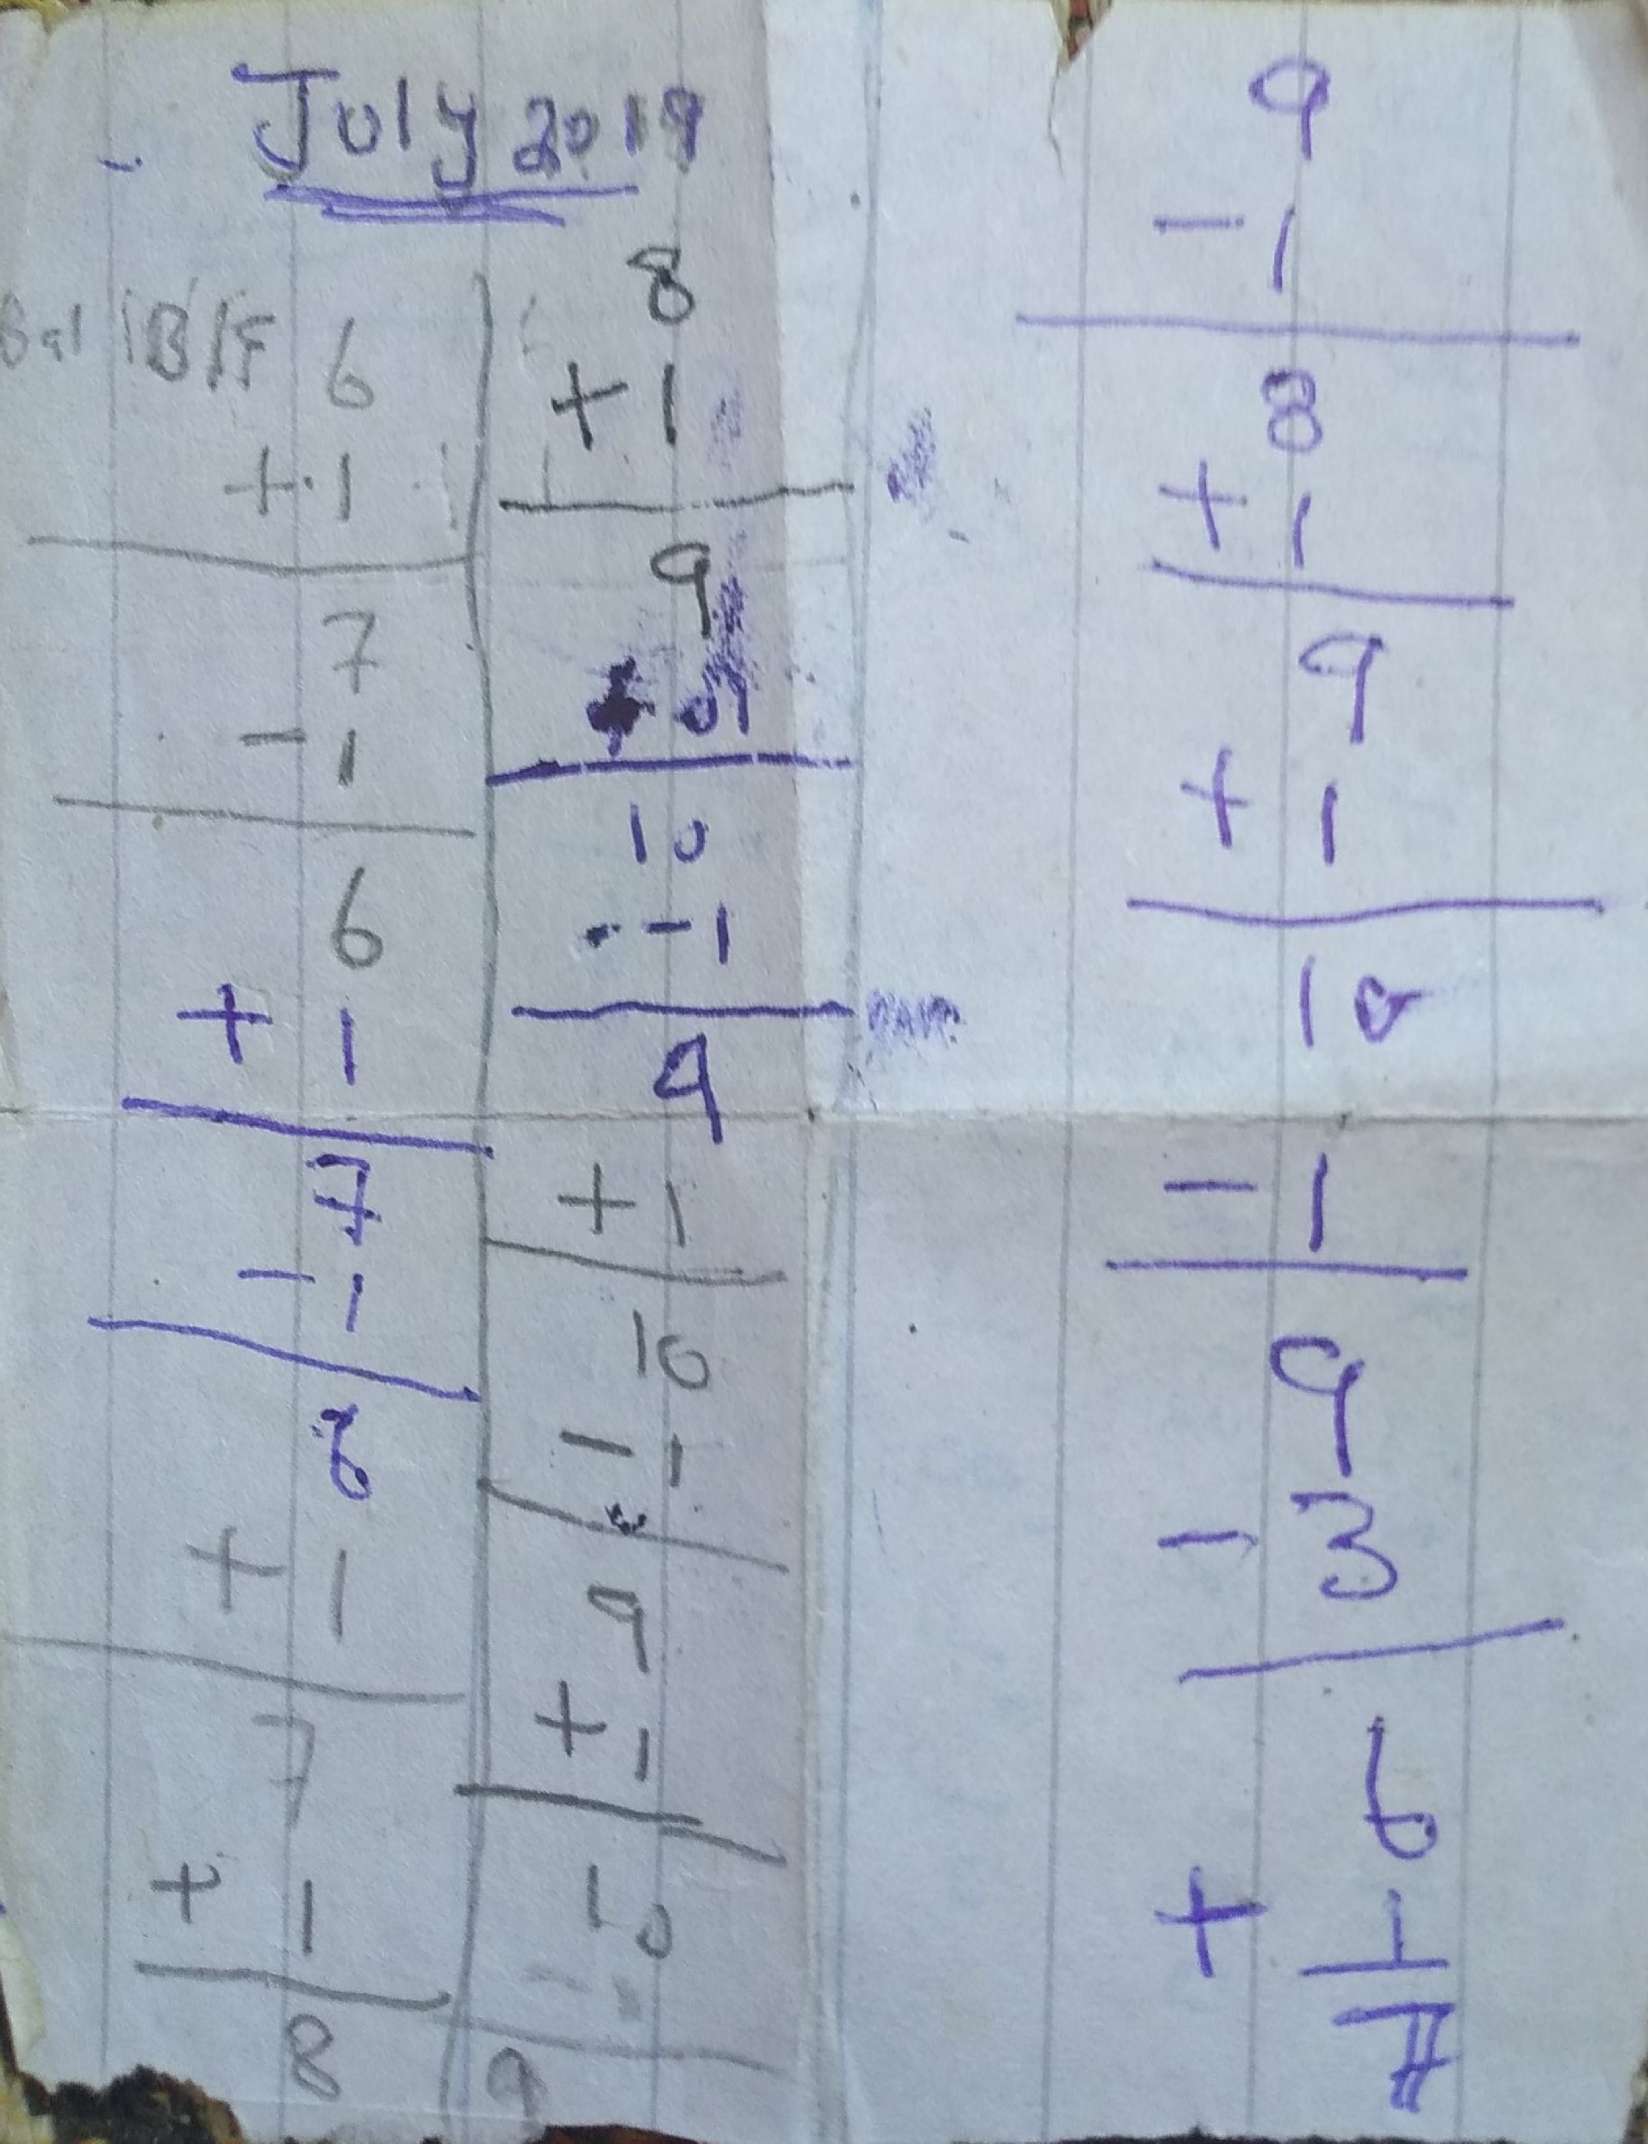 July 2019
Bal B/F 6
+ 1
7
- 1
6
+ 1
7
- 1
6
+ 1
7
+ 1
8
8
+ 1
9
10
- 1
9
+ 1
10
- 1
9
+ 1
10
9
9
- 1
8
+ 1
9
+ 1
10
- 1
9
- 3
6
+ 1
7